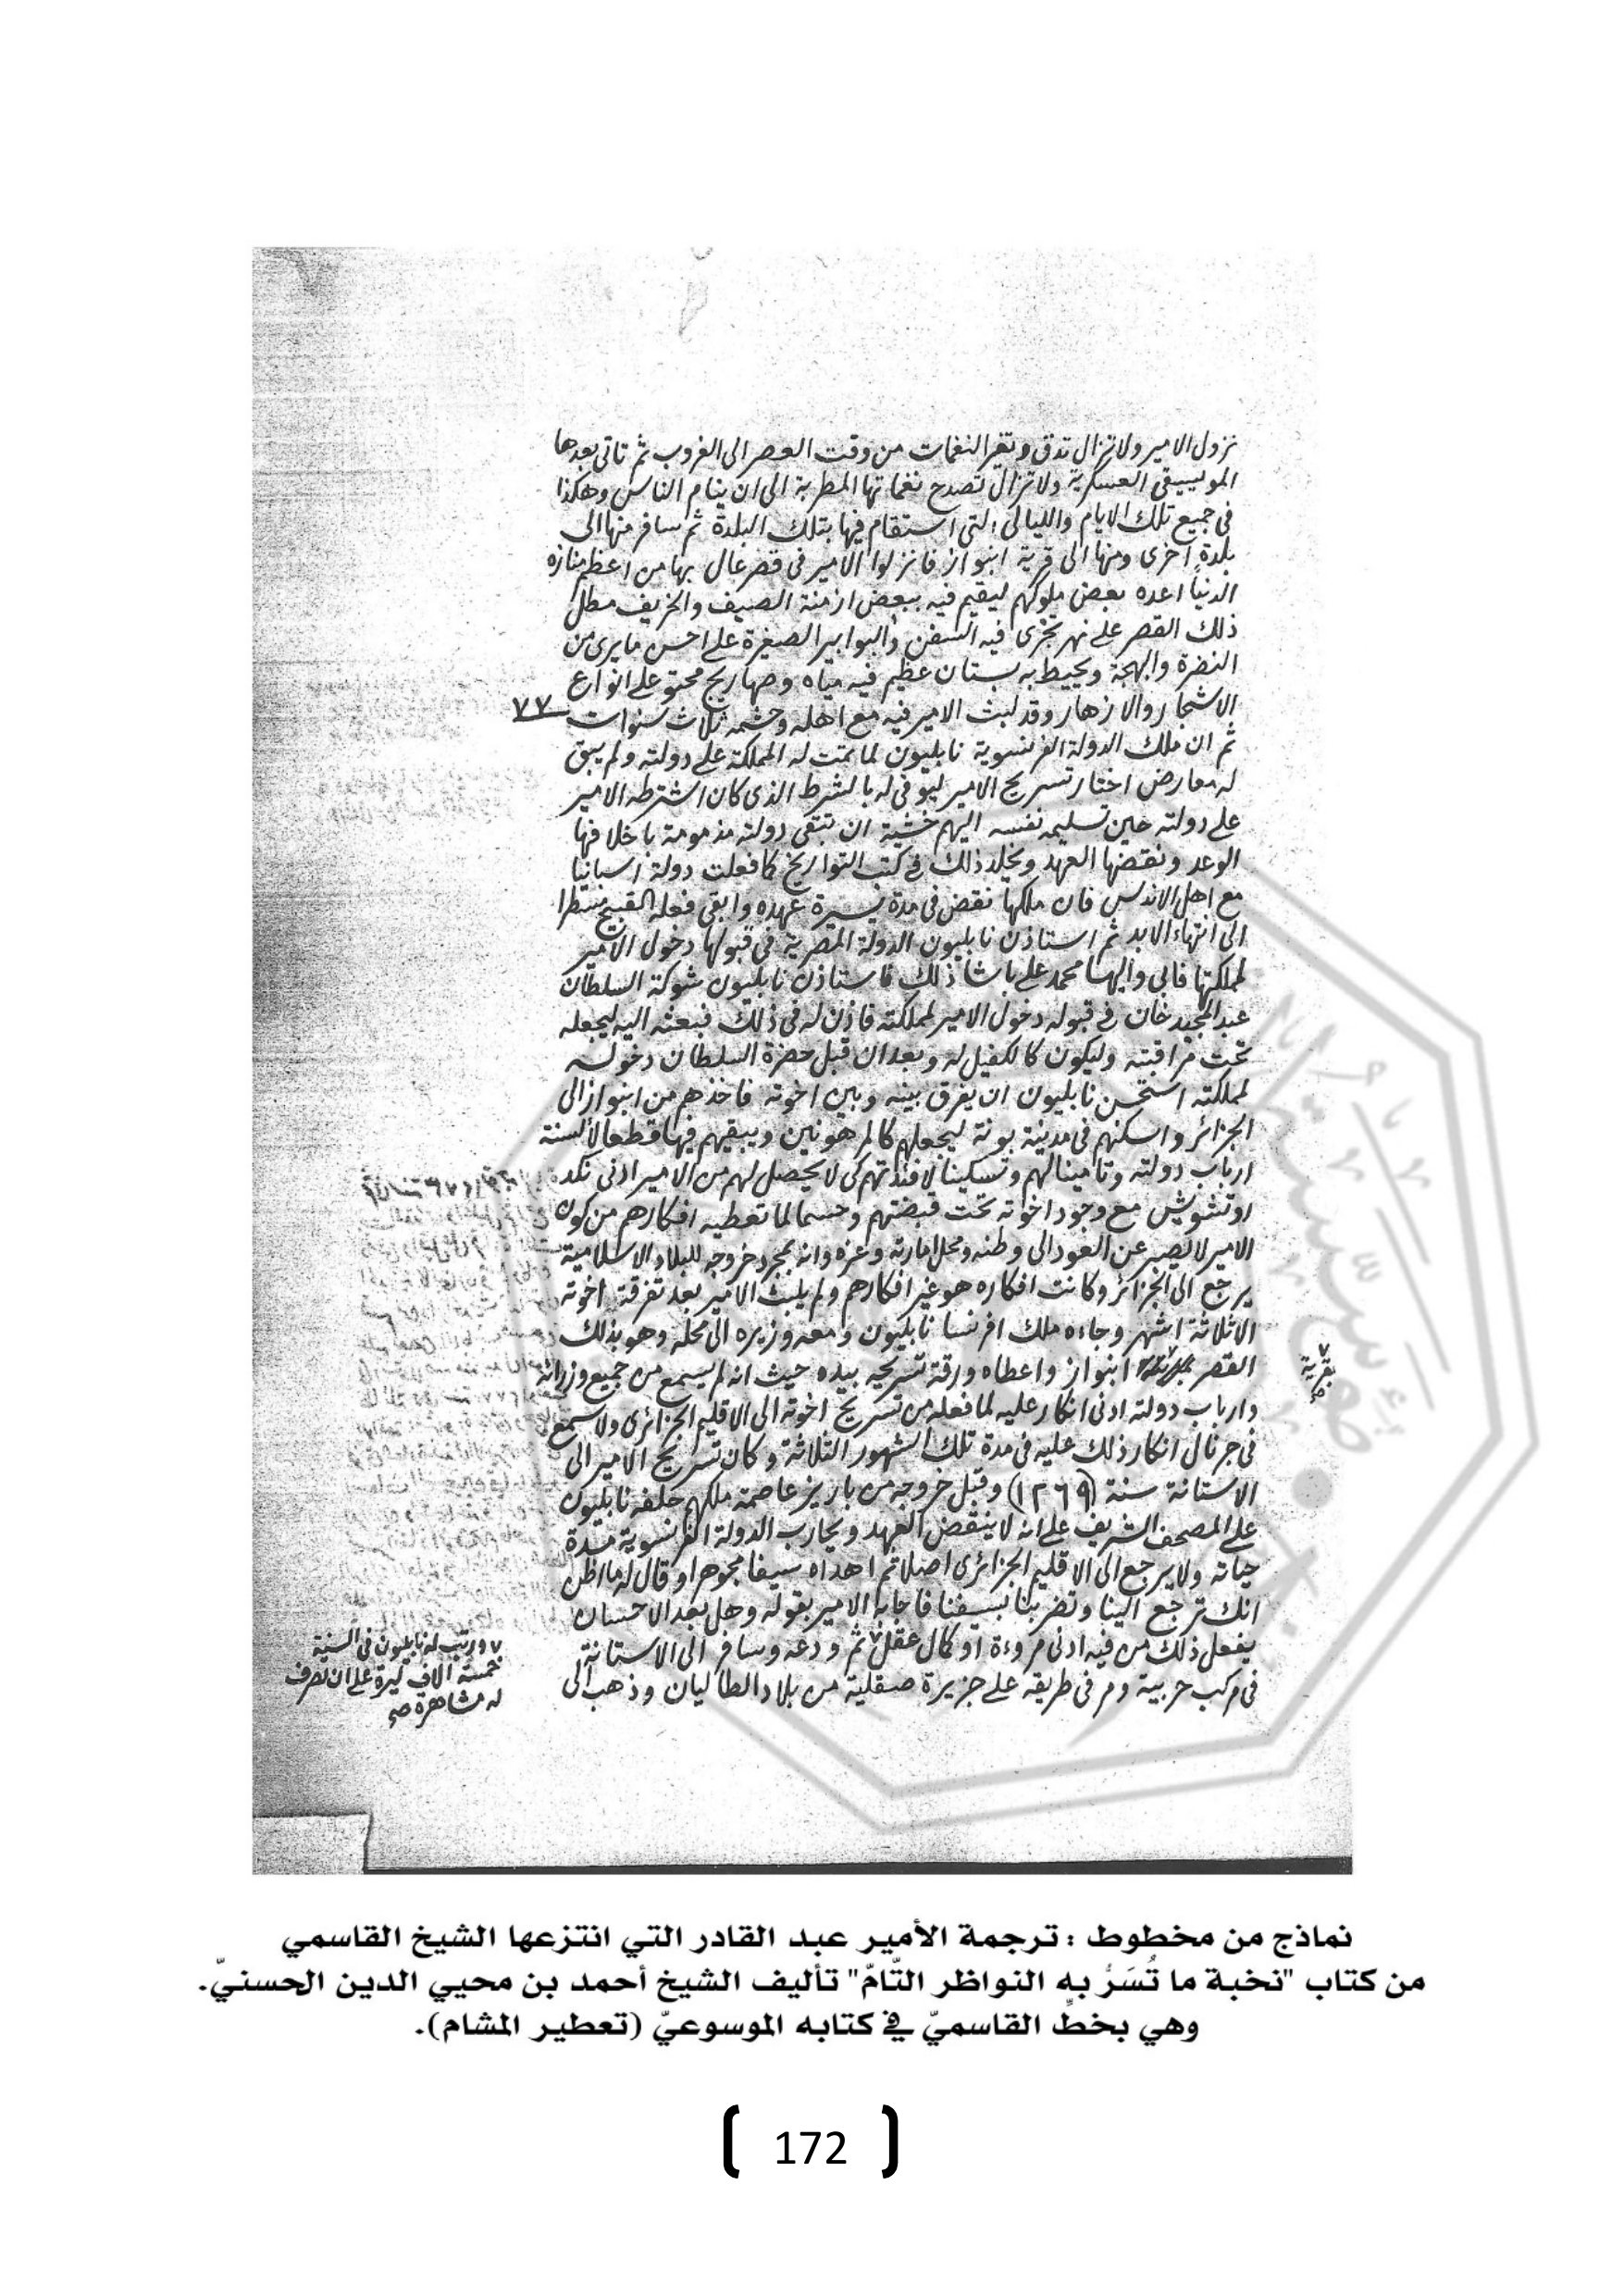 نزول الامير ولا تزال تدق وتغير النغمات من وقت العصر الى الغروب ثم تاتى بعدها
الموسيقى العسكرية ولا تزال تصدح نغماتها المطربة الى ان ينام الناس وهكذا
فى جميع تلك الايام والليالى التى استقام فيها بتلك البلدة ثم سافر منها الى
بلدة اخرى ومنها الى قرية انبواز فانزلوا الامير فى قصر عال بها من اعظم منازه
الدنيا اعده بعض ملوكهم ليقيم فيه ببعض ازمنة الصيف والخريف مطل
ذلك القصر على نهر تجرى فيه السفن والبوابير الصغيرة على احسن ما يرى من
النضرة والبهجة ويحيط به بستان عظيم فيه مياه وصهاريج محتو على انواع
الاشجار والازهار وقد لبث الامير فيه مع اهله وحشمه ثلاث سنوات
٧٧
ثم ان ملك الدولة الفرنسوية نابليون لما تمت له المملكة على دولته ولم يبق
له معارض اختار تسريح الامير ليوفى له بالشرط الذى كان اشترطه الامير
على دولته حين تسليمه نفسه اليهم خشية ان تبقى دولته مذمومة باخلافها
الوعد ونقضها العهد ويخلد ذلك فى كتب التواريخ كما فعلت دولة اسبانيا
مع اهل الاندلس فان ملكها نقض فى مدة يسيرة عهده وابقى فعله القبيح
الى انتهاء الابد ثم استاذن نابليون الدولة المصرية فى قبولها دخول الامير
لمملكتها فابى واليها محمد على باشا ذلك فاستاذن نابليون شوكة السلطان
عبد المجيد خان فى قبوله دخول الامير لمملكته فاذن له فى ذلك فبعثه اليه ليجعله
تحت مراقبته وليكون كالكفيل له وبعد ان قبل حضرة السلطان دخوله
لمملكته استحسن نابليون ان يفرق بينه وبين اخوته فاخذهم من انبواز الى
الجزائر واسكنهم فى مدينة بونة ليجعلهم كالمرهونين ويبقيهم فيها قطعا لالسنة
ارباب دولته وتامينا لهم وتسكينا لافئدتهم كى لا يحصل لهم من الامير ادنى نكد
او تشويش مع وجود اخوته تحت قبضتهم وحسما لما تعطيه افكارهم من كون
الامير لا يصبر عن العود الى وطنه ومحل امارته وعزه وانه بمجرد خروجه للبلاد الاسلامية
يرجع الى الجزائر وكانت افكاره هو غير افكارهم ولم يلبث الامير بعد تفرقة اخوته
الا ثلاثة اشهر وجاءه ملك افرنسا نابليون ومعه وزيره الى محله وهو بذلك
القصر انبواز واعطاه ورقة تسريحه بيده حيث انه لم يسمع من جميع وزرائه
بقرية صح
وارباب دولته ادنى انكار عليه لما فعله من تسريح اخوته الى الاقليم الجزائرى ولا سمع
فى جرنال انكار ذلك عليه فى مدة تلك الشهور الثلاثة وكان تسريح الامير الى
الاستانة سنة (١٢٦٩) وقبل خروجه من باريز عاصمة ملكهم حلفه نابليون
على المصحف الشريف على انه لا ينقض العهد ويحارب الدولة الفرنسوية مدة
حياته ولا يرجع الى الاقليم الجزائرى اصلا ثم اهداه سيفا مجوهرا وقال له ما اظن
انك ترجع الينا وتضربنا بسيفنا فاجابه الامير بقوله وهل بعد الاحسان
يفعل ذلك من فيه ادنى مروءة او كمال عقل ثم ودعه وسافر الى الاستانة
فى مركب حربية ومر فى طريقه على جزيرة صقلية من بلاد الطاليان وذهب الى
ورتب له نابليون فى السنة
خمسة الاف ليرة على ان تصرف
له مشاهرة صح
نماذج من مخطوط : ترجمة الأمير عبد القادر التي انتزعها الشيخ القاسمي
من كتاب "نخبة ما تُسَرُّ به النواظر التّامّ" تأليف الشيخ أحمد بن محيي الدين الحسنيّ.
وهي بخطِّ القاسميّ في كتابه الموسوعيّ (تعطير المشام).
172